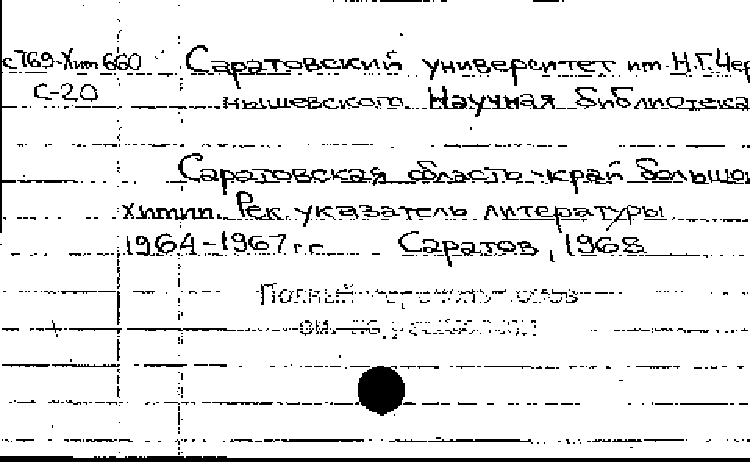 с769-Хим 660 Саратовский университет им. Н.Г. Чер
С-20 нышевского. Научная библиотека
Саратовская область-край большо
химии. Рек. указатель литературы
1964-1967 г.г. Саратов, 1968
Полный
см. на